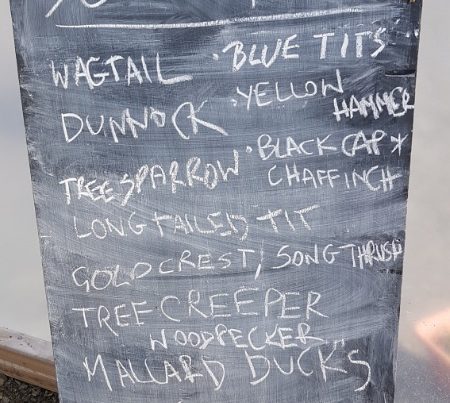 WAGTAIL · BLUE TITS
DUNNOCK · YELLOW
HAMMER
TREE SPARROW · BLACK CAP *
CHAFFINCH
LONG TAILED TIT
GOLDCREST / SONG THRUSH
TREE CREEPER
WOODPECKER
MALLARD DUCKS